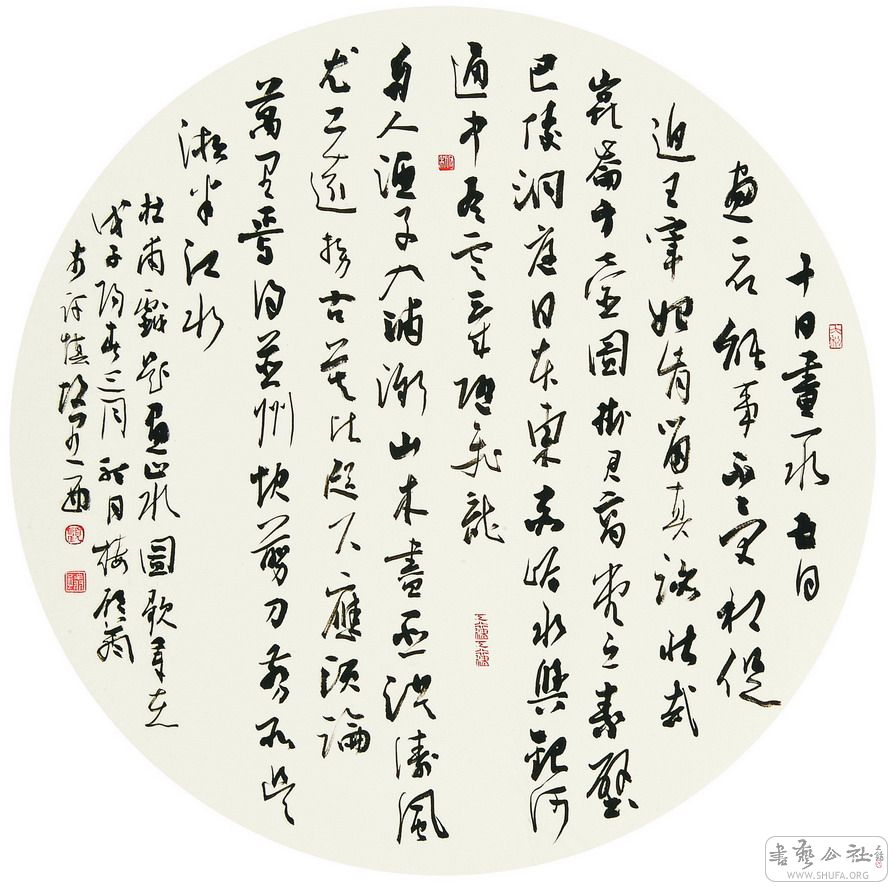 十日畫一水五日
畫一石能事不受相促
迫王宰始肯留真跡壯哉
崑崙方壺圖掛君高堂之素壁
巴陵洞庭日本東赤岸水與銀河
通中有雲氣隨飛龍
舟人漁子入浦漵山木盡亞洪濤風
尤工遠勢古莫比咫尺應須論
萬里焉得并州快剪刀剪取吳
淞半江水
杜甫戲題畫山水圖歌歲在
戊子陽春三月
書藝公社
WWW.SHUFA.ORG